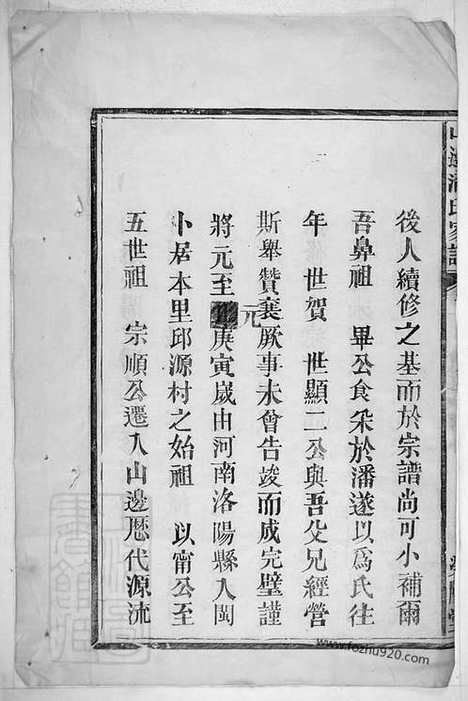 後人續修之基而於宗譜尚可小補爾
吾鼻祖 畢公食采於潘遂以爲氏往
年 世賀 世顯二公與吾父兄經營
斯舉贊襄厥事未曾告竣而成完璧謹
將元至元庚寅歲由河南洛陽縣入閩
卜居本里邱源村之始祖 以甯公至
五世祖 宗順公遷入山邊歷代源流
www.fozhu920.com